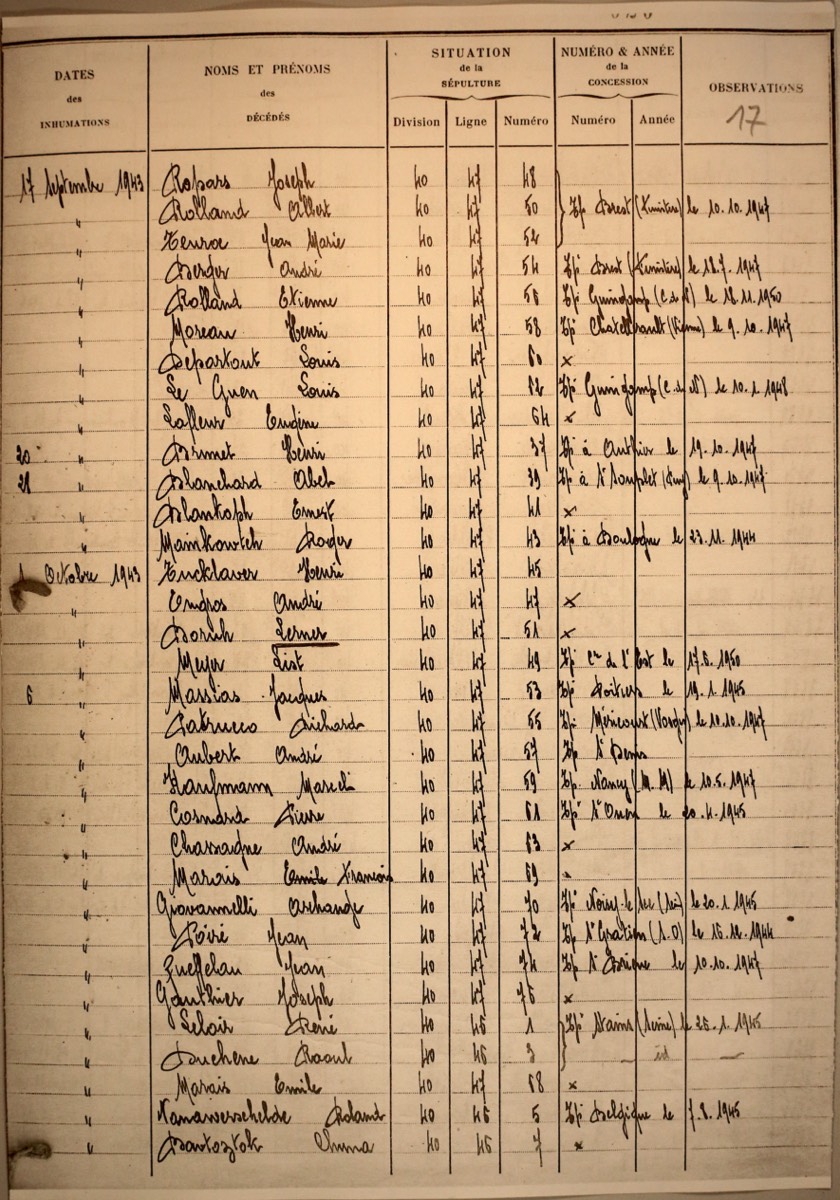 DATES des INHUMATIONS NOMS ET PRÉNOMS des DÉCÉDÉS SITUATION de la SÉPULTURE NUMÉRO & ANNÉE de la CONCESSION OBSERVATIONS 17
Division Ligne Numéro Numéro Année
17 Septembre 1943 Ropars Joseph 40 47 48
" Rolland Albert 40 47 50 Brest (Finistère) le 10.10.1947
" Jean Marie 40 47 52
" Berger André 40 47 54 Brest (Finistère) le 18.7.1947
" Rolland Etienne 40 47 56 Guingamp (C.d.N) le 18.11.1950
" Moreau Henri 40 47 58 Chatellerault (Vienne) le 9.10.1947
" Departout Louis 40 47 60 x
" Le Guen Louis 40 47 62 Guingamp (C.d.N) le 10.1.1948
" Lafleur Eugène 40 47 64 x
20 " Brimet Henri 40 47 37 à le 19.10.1947
21 " Blanchard Abel 40 47 39 à le 9.10.1947
" Blankoph Ernest 40 47 41 x
" Mainkowtch Roger 40 47 43 à Boulogne le 23.11.1944
1 Octobre 1943 Tucklaver Henri 40 47 45
" André 40 47 47 x
" Boruh Lerner 40 47 51 x
" Meyer List 40 47 49 de l'Est le 17.6.1950
6 " Massias Jacques 40 47 53 Poitiers le 19.1.1945
" Patrucco Richard 40 47 55 Méricourt le 10.10.1947
" Aubert André 40 47 57 St Denis
" Kaufmann Marcel 40 47 59 Nancy (M.M) le 10.5.1947
" Cosnard Pierre 40 47 61 St Ouen le 20.4.1945
" Chassagne André 40 47 63 x
" Marais Emile François 40 47 69
" Giovannelli Archange 40 47 70 Noisy-le-Sec (Seine) le 20.1.1945
" Poiré Jean 40 47 72 St Gratien (S.O) le 15.12.1944
" Queffelau Jean 40 47 74 St Brieuc le 10.10.1947
" Gauthier Joseph 40 47 76 x
" Leloir René 40 46 1 Stains (Seine) le 25.1.1945
" Duchene Raoul 40 46 3 id
" Marais Emile 40 47 68 x
" Vanawerschelde Roland 40 46 5 Belgique le 7.8.1945
" Bartoztok Chuma 40 46 7 x